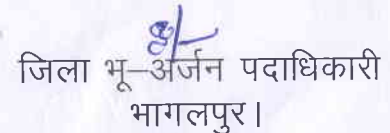 जिला भू-अर्जन पदाधिकारी
भागलपुर।